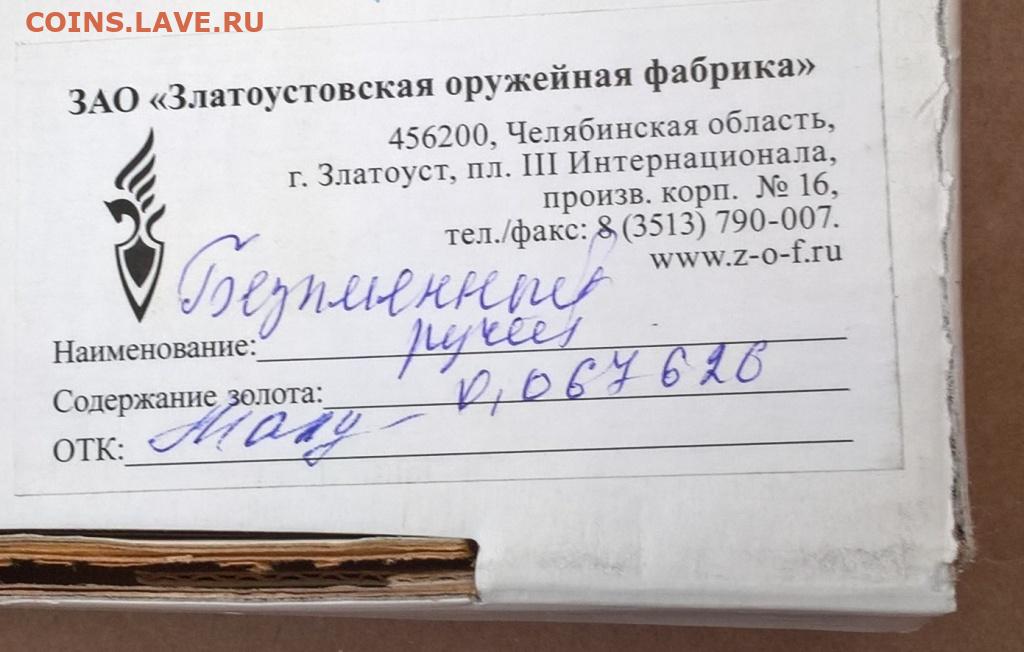 COINS.LAVE.RU
ЗАО «Златоустовская оружейная фабрика»
456200, Челябинская область,
г. Златоуст, пл. III Интернационала,
произв. корп. № 16,
тел./факс: 8 (3513) 790-007.
www.z-o-f.ru
Безименный
Наименование: ручей
Содержание золота: 0,067626
ОТК: